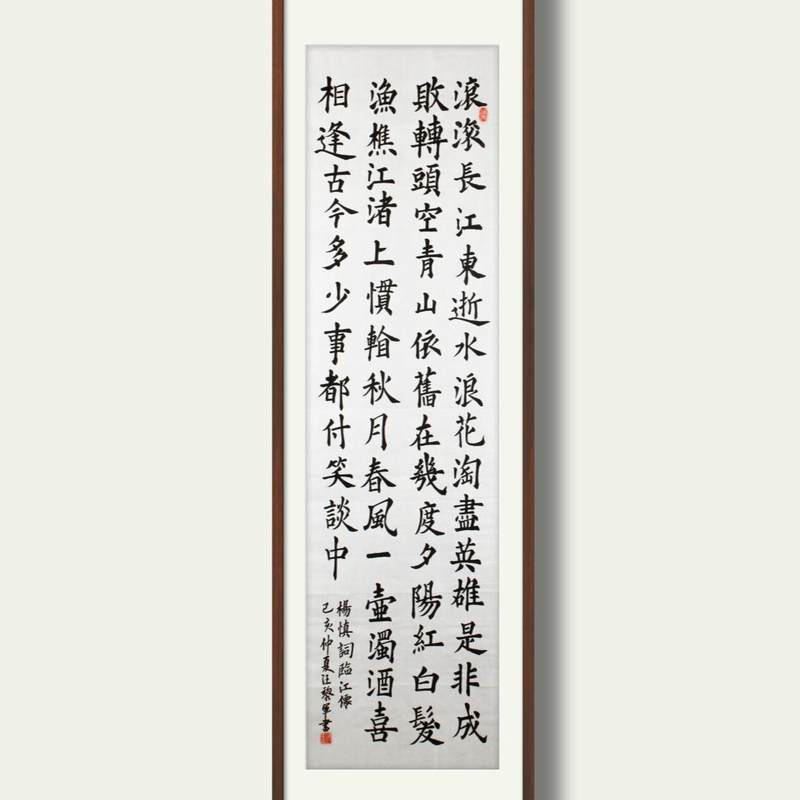 滾滾長江東逝水浪花淘盡英雄是非成
敗轉頭空青山依舊在幾度夕陽紅白髮
漁樵江渚上慣看秋月春風一壺濁酒喜
相逢古今多少事都付笑談中
楊慎詞臨江僊
己亥仲夏汪黎軍書